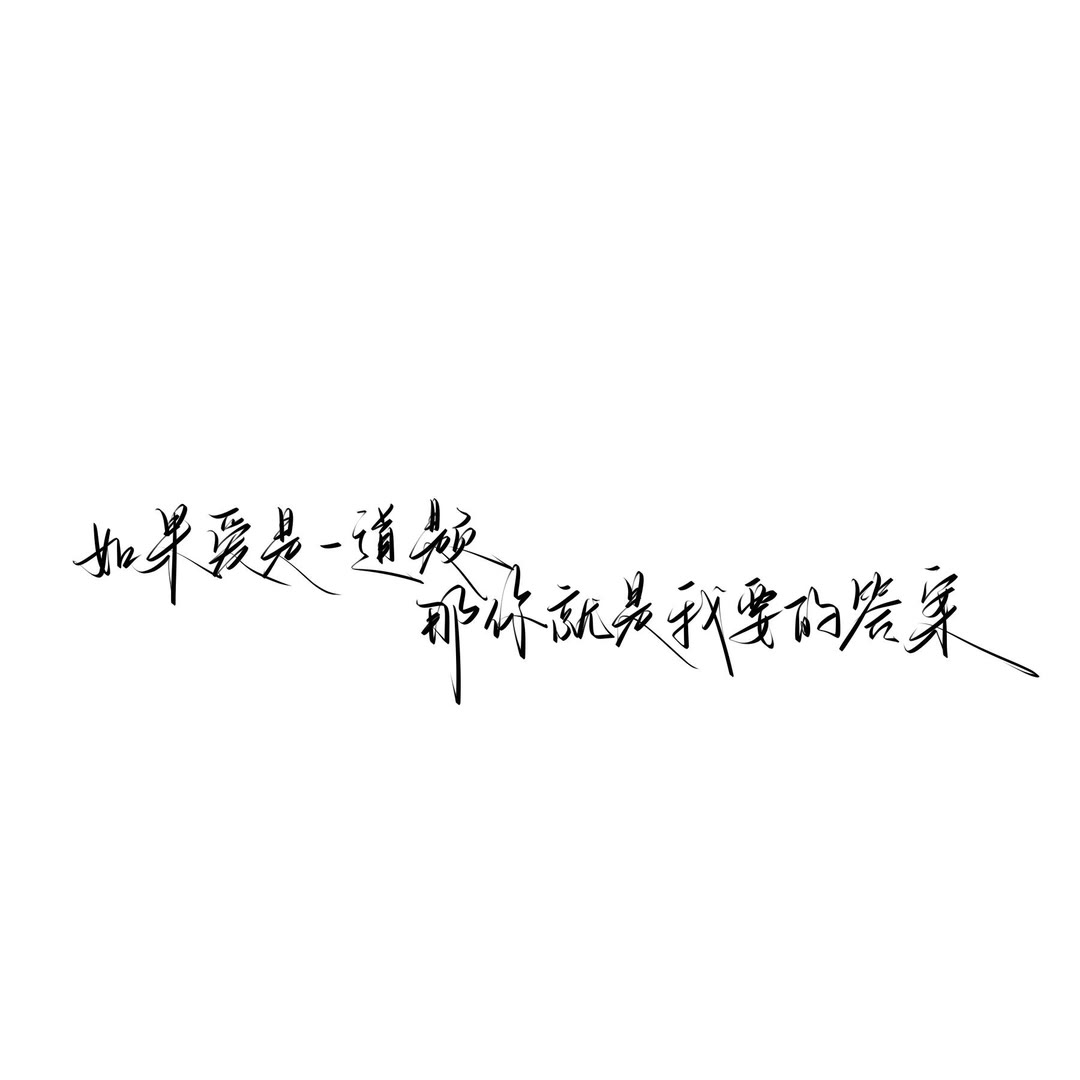 如果爱是一道题
那你就是我要的答案